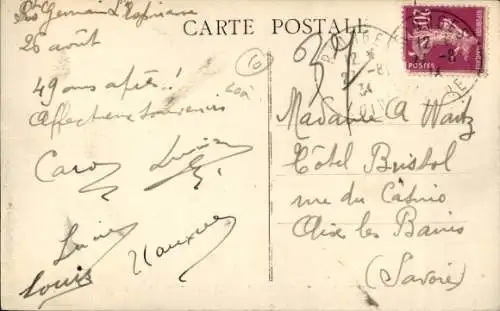 CARTE POSTALE
St Germain L'Espinasse
26 août
49 ans après..!
Affectueux souvenirs
Caro
Lucie
Louis
10
Madame A Waitz
Hôtel Bristol
rue du Casino
Aix les Bains
(Savoie)
20
34